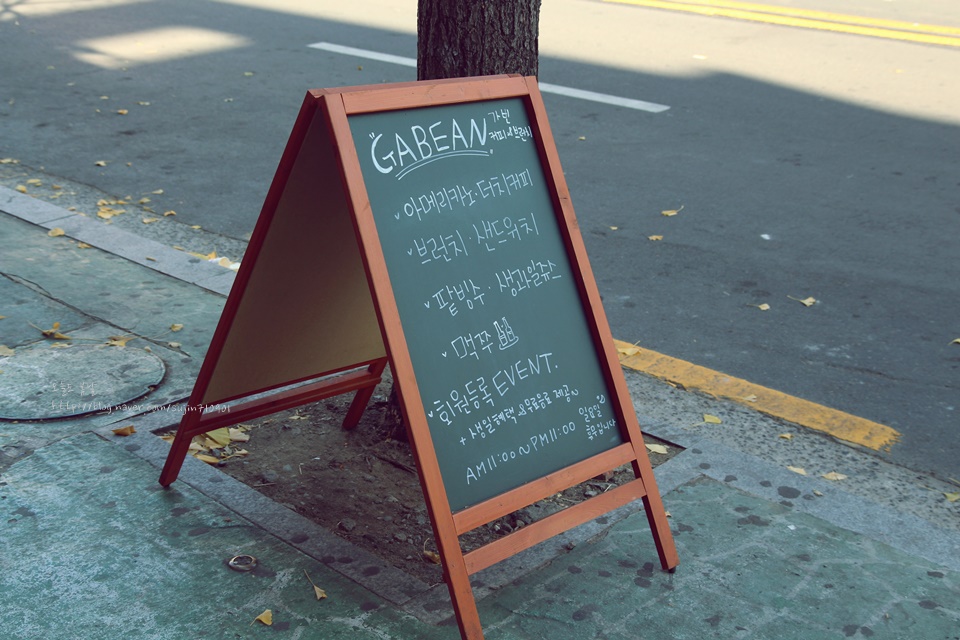 "GABEAN"
가빈
커피 & 브런치
아메리카노·더치커피
브런치·샌드위치
팥빙수·생과일쥬스
맥쭈
회원등록 EVENT.
+ 생일혜택 & 무료음료 제공~
AM11:00~PM11:00
일요일은
휴무입니다
http://blog.naver.com/sujin710901